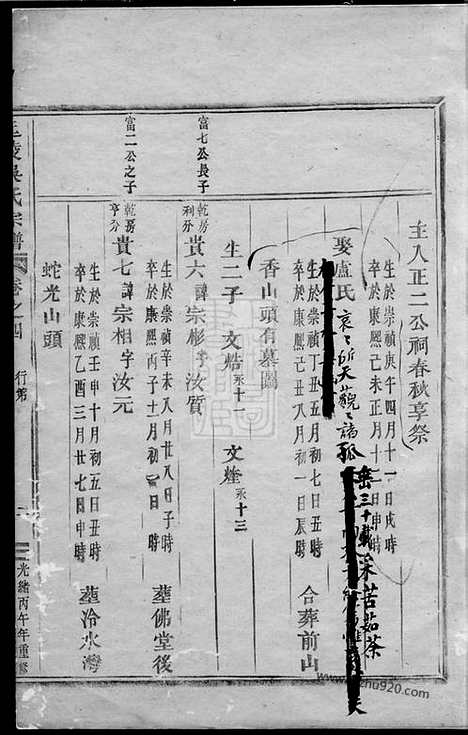 主入正二公祠春秋享祭
生於崇禎庚午四月十一日戌時
卒於康熙己未正月十二日申時
娶盧氏 哀哀所天藐藐諸孤
三十載 采苦茹荼
生於崇禎丁丑五月初七日丑時
卒於康熙己丑八月初一日辰時
合葬前山
香山頭有墓圖
生二子 文焅永十一 文煃永十三
富七公長子
乾房利分
貴六諱宗彬字汝質
生於崇禎辛未八月廿八日子時
卒於康熙丙子十一月初一日時
葬佛堂後
富二公之子
乾房亨分
貴七諱宗相字汝元
生於崇禎壬申十月初五日丑時
卒於康熙乙酉三月廿七日申時
葬冷水灣
蛇光山頭
吳氏宗譜
卷之四
行第
光緒丙午年重修
zhu920.com